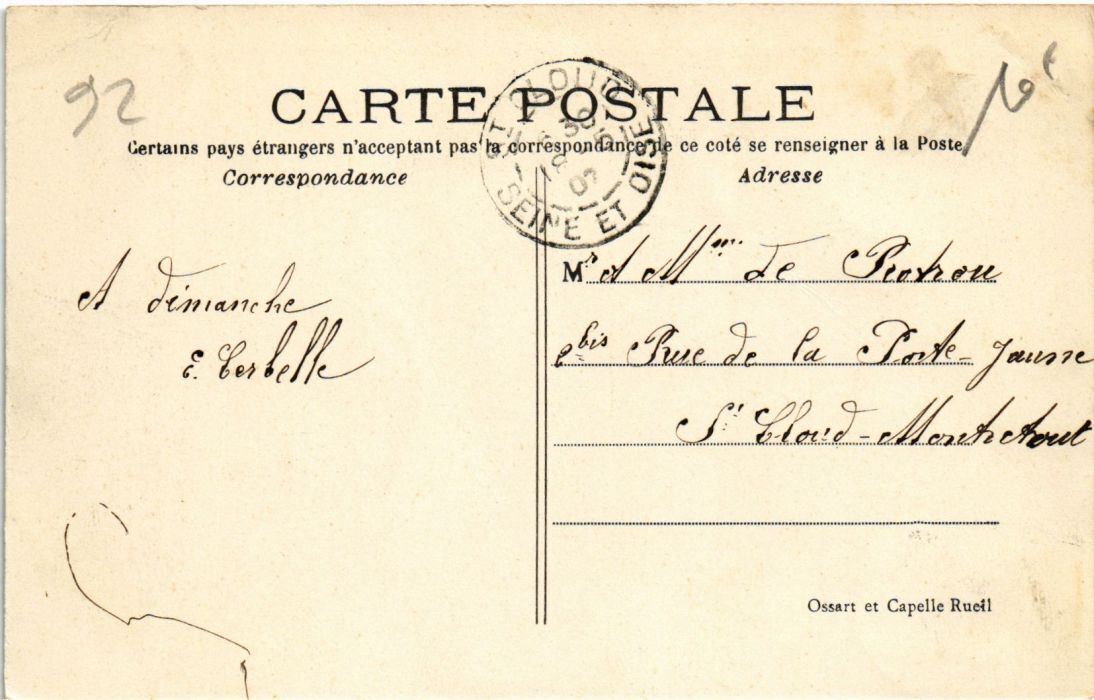 92
CARTE POSTALE
Certains pays étrangers n'acceptant pas la correspondance de ce coté se renseigner à la Poste
Correspondance
Adresse
ST CLOUD
SEINE ET OISE
A dimanche
E. Cerbelle
Mr et Mme de Rotrou
bis Rue de la Porte-Jaune
St Cloud-Montretout
Ossart et Capelle Rueil